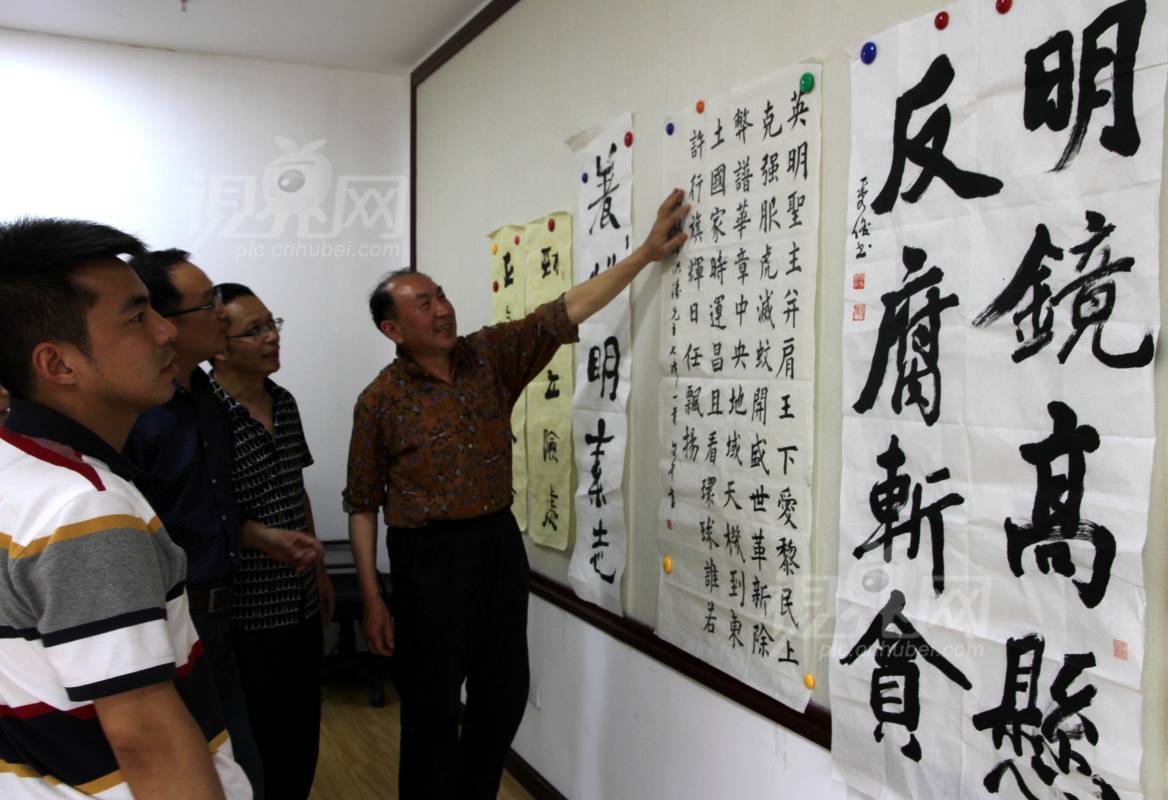 明鏡高懸
反腐斬貪
英明聖主并肩王下愛黎民上
克强服虎滅蚊開盛世革新除
弊譜華章中央地域天機到東
土國家時運昌且看環球誰若
許行旗輝日任飄揚
養
明素志
勁
立險處
正
視界网
pic.cnhubei.com
視界网
pic.cnhubei.com